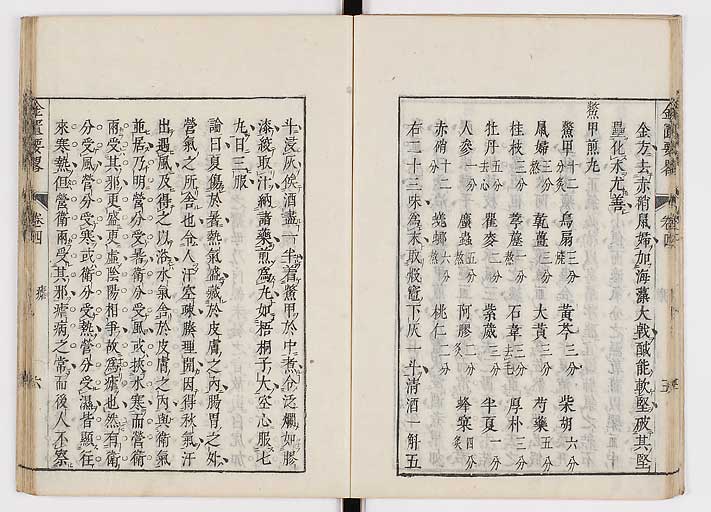 金匱要略
卷四
瘧
五
金方去赤硝鼠婦加海藻大戟䤈能軟堅破其堅
壘化水尤善
鱉甲煎丸
鱉甲十二分炙 烏扇三分燒 黃芩三分 柴胡六分
鼠婦三分熬 乾薑三分 大黃三分 芍藥五分
桂枝三分 葶藶一分熬 石韋三分去毛 厚朴三分
牡丹五分去心 瞿麥二分 紫葳三分 半夏一分
人參一分 䗪蟲五分熬 阿膠三分炙 蜂窠四分炙
赤硝十二分 蜣蜋六分熬 桃仁二分
右二十三味為末取煅竈下灰一斗清酒一斛五
斗浸灰候酒盡一半着鱉甲於中煮令泛爛如膠
漆絞取汁納諸藥煎為丸如梧桐子大空心服七
丸日三服
論曰夏傷於暑熱氣盛藏於皮膚之內腸胃之外
營氣之所舍也令人汗空疎腠理開因得秋氣汗
出遇風及得之以浴水氣舍於皮膚之內與衛氣
並居乃明營分受暑衛分受風或挾水寒而營衛
兩受其邪更盛更虛陰陽相爭故為瘧也然有衛
分受風營分受寒或衛分受熱營分受濕皆顯往
來寒熱但營衛兩受其邪瘧病之常而後人不察
金匱要略
卷四
瘧
六